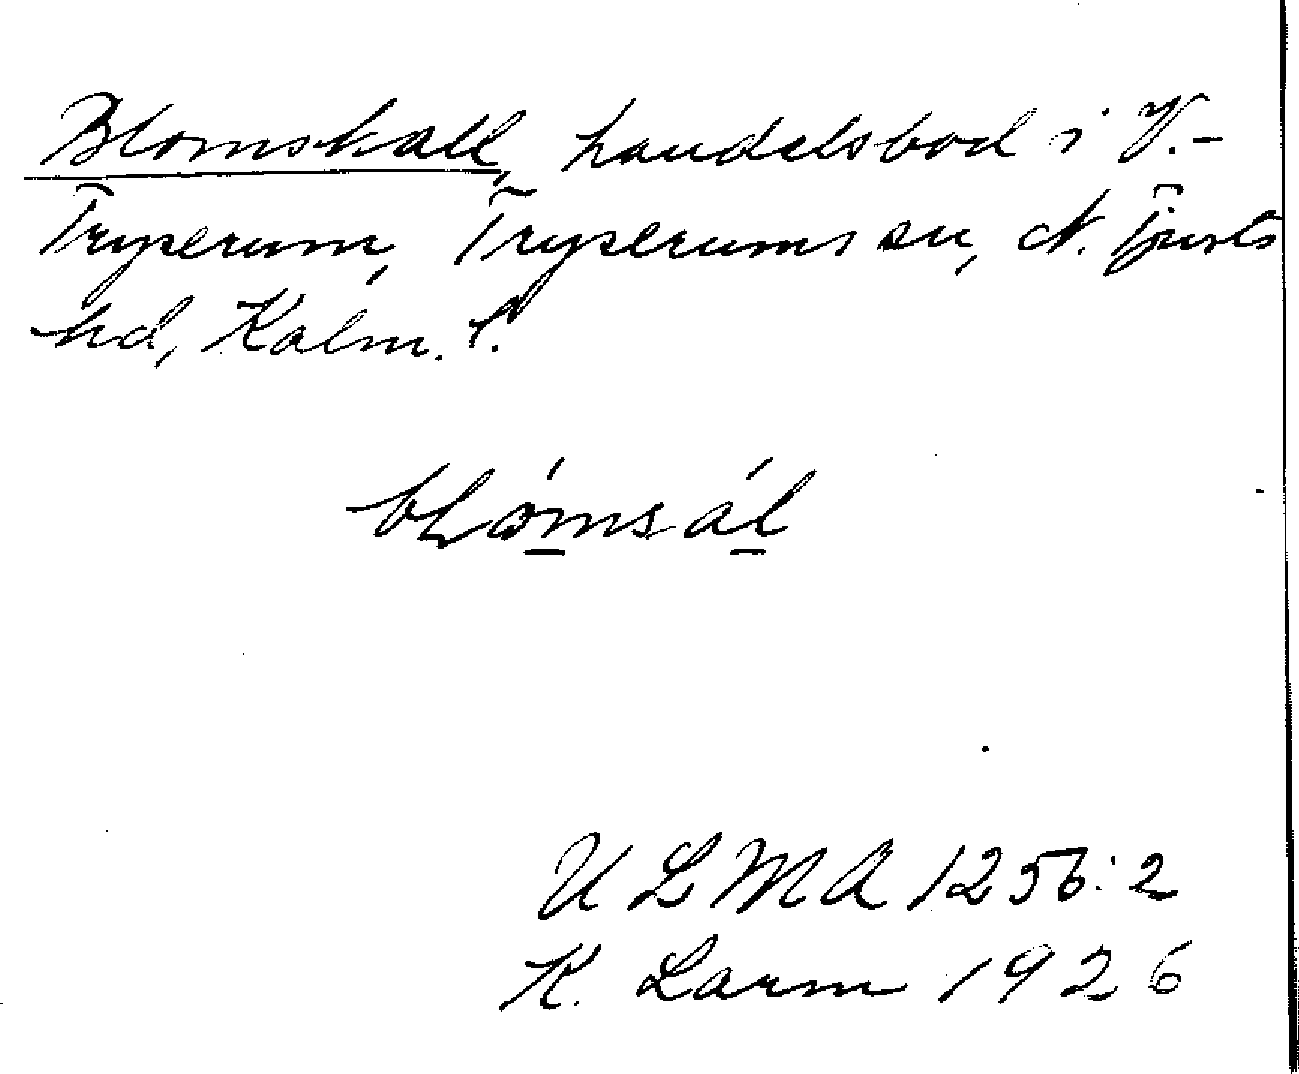 Blomskall, handelsbod i V.-
Tryserum, Tryserums sn, N. Tjusts
hd, Kalm. l.
ULMA 1256:2
K. Larm 1926